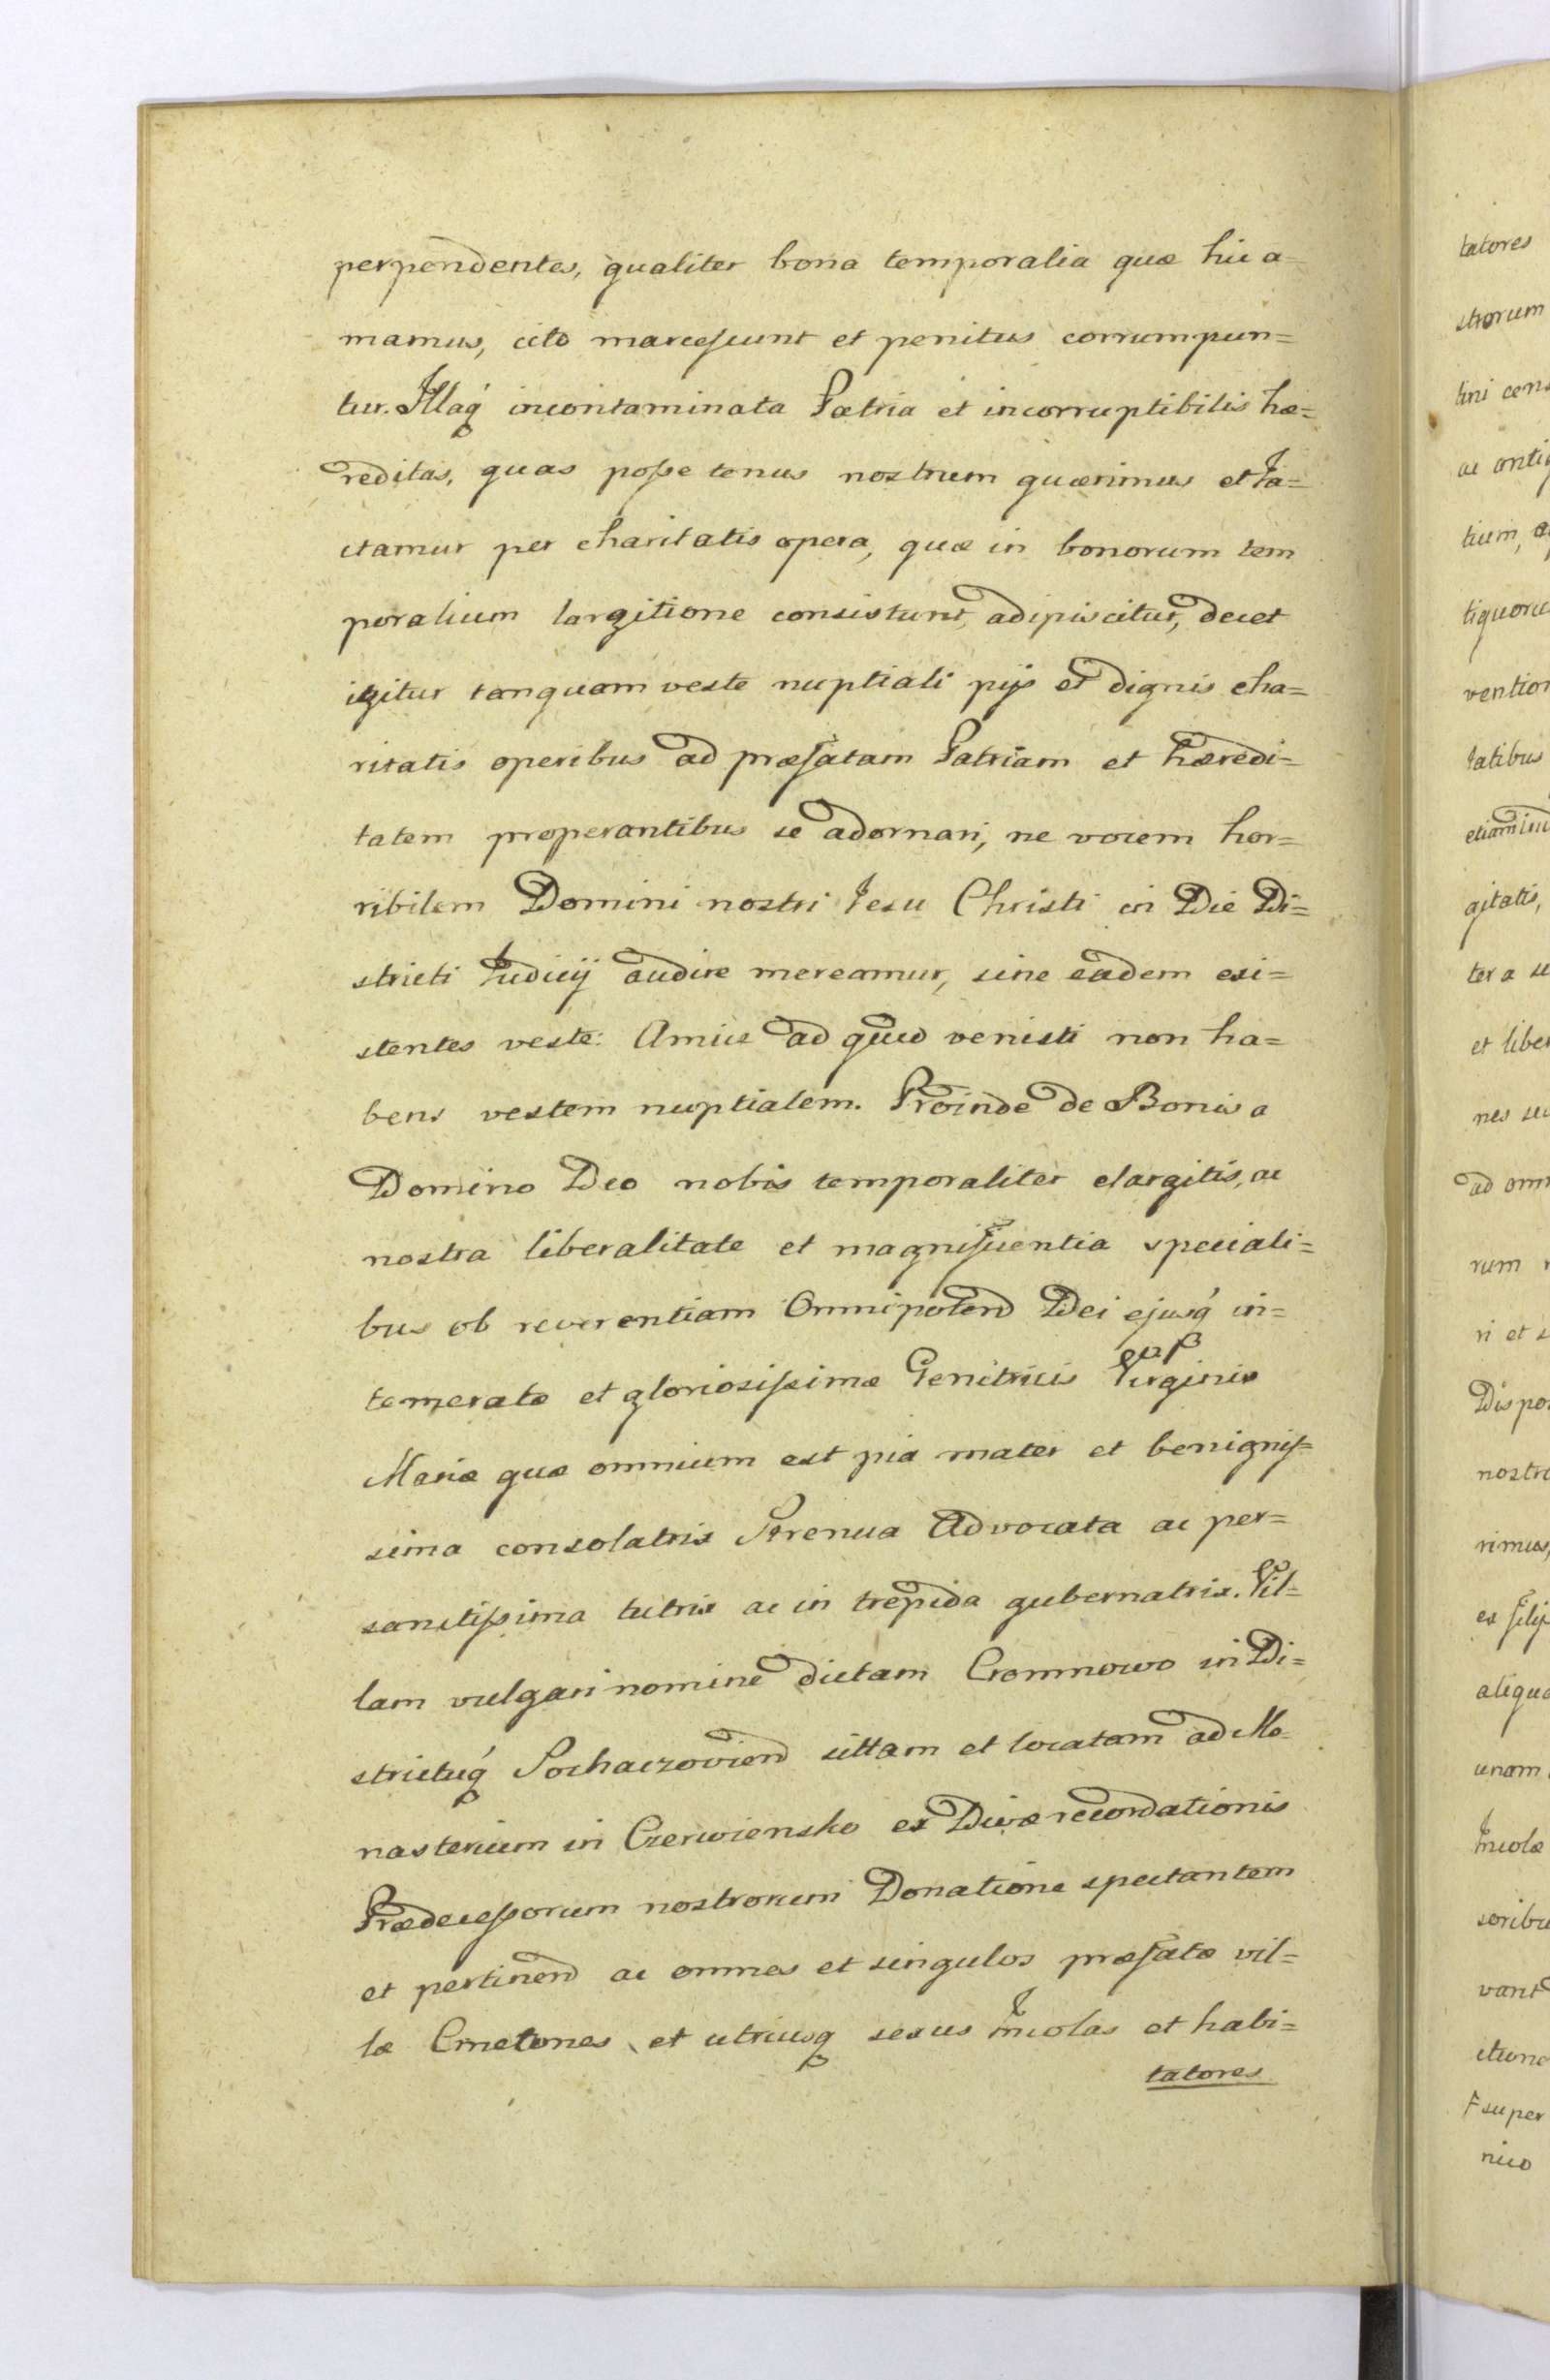 perpendentes, qualiter bona temporalia quæ hic a=
mamus, cito marcescunt et penitus corrumpun=
tur. Illaq́ incontaminata Patria et incorruptibilis hæ=
reditas, quas posse tenus nostrum quærimus et Ia=
ctamur per charitatis opera, quæ in bonorum tem
poralium largitione consistunt, adipiscitur, decet
igitur tanquam veste nuptiali pijs et dignis cha=
ritatis operibus ad præfatam Patriam et hæredi=
tatem properantibus se adornari, ne vocem hor=
ribilem Domini nostri Iesu Christi in Die Di=
stricti Iudicij audire mereamur, sine eadem exi=
stentes veste: Amice ad quid venisti non ha=
bens vestem nuptialem. Proinde de Bonis a
Domino Deo nobis temporaliter elargitis, ac
nostra liberalitate et magnificentia speciali=
bus ob reverentiam Omnipotend Dei ejusq́ in=
temeratæ et gloriosissimæ Genitricis Virginis
Mariæ quæ omnium est pia mater et benignis=
sima consolatrix Strenua Advocata ac per=
sanctissima tutrix ac in trepida gubernatrix. Vil=
lam vulgari nomine dictam Cromnowo in Di=
strictuq́ Sochaczoviend sittam et locatam ad Mo=
nasterium in Czerwiensko ex Divæ recordationis
Prædecessorum nostrorum Donatione spectantem
et pertinend ac omnes et singulos præfatæ vil=
læ Cmetones, et utriusq sexus Incolas et habi=
tatores
tatores
strorum
tini cens
ac antiq
tium,
tiquoru
vention
tatibus
agitatis,
ter a se
et liber
nes seu
ad omn
rum
ri et s
Dispo
nostr
rimus,
ex filij
aliqu
unam
Incolæ
soribu
vant
ctione
super
nico